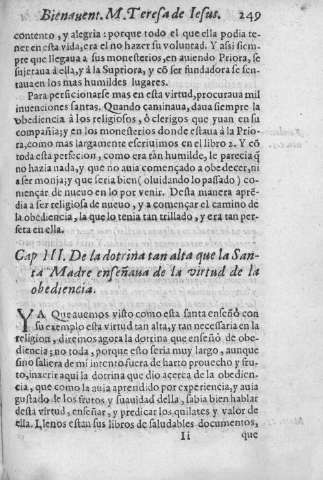 Bienauent. M. Teresa de Iesus. 249
contento, y alegria: porque todo el que ella podia te-
ner en esta vida, era el no hazer su voluntad. Y assi siem-
pre que llegaua a sus monesterios, en auiendo Priora, se
sujetaua à ella, y à la Supriora, y cõ ser fundadora se sen-
taua en los mas humildes lugares.
Para perficionarse mas en esta virtud, procuraua mil
inuenciones santas. Quando caminaua, daua siempre la
obediencia à los religiosos, ò clerigos que yuan en su
compañia; y en los monesterios donde estaua à la Prio-
ra, como mas largamente escriuimos en el libro 2. Y cõ
toda esta perfecion, como era tan humilde, le parecia q̃
no hazia nada, y que no auia començado a obedecer, ni
a ser monja; y que seria bien (oluidando lo passado) co-
mençar de nueuo en lo por venir. Desta manera apre-
dia a ser religiosa de nueuo, y a començar el camino de
la obediencia, la que lo tenia tan trillado, y era tan per-
feta en ella.
Cap III. De la dotrina tan alta que la San-
ta Madre enseñaua de la virtud de la
obediencia.
YA Que auemos visto como esta santa enseñò con
su exemplo esta virtud tan alta, y tan necessaria en la
religion, diremos agora la dotrina que enseñò de obe-
diencia; no toda, porque esto seria muy largo, aunque
sino saliera de mi intento fuera de harto prouecho y fru-
to, inxerir aqui la dotrina que dio acerca de la obedien-
cia, que como la auia aprendido por experiencia, y auia
gustado de los frutos y suauidad della, sabia bien hablar
desta virtud, enseñar, y predicar los quilates y valor de
ella. Llenos estan sus libros de saludables documentos,
Ii que